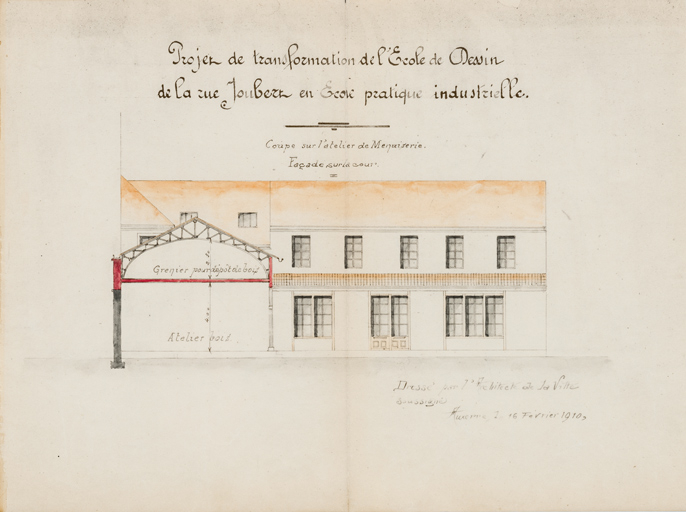 Projet de transformation de l'Ecole de Dessin
de la rue Joubert en Ecole pratique industrielle.
Coupe sur l'atelier de Menuiserie.
Façade sur la cour.
Grenier pour dépôt de bois
Atelier bois
Dressé par l'Architecte de la Ville
soussigné
Auxerre, Février 1910